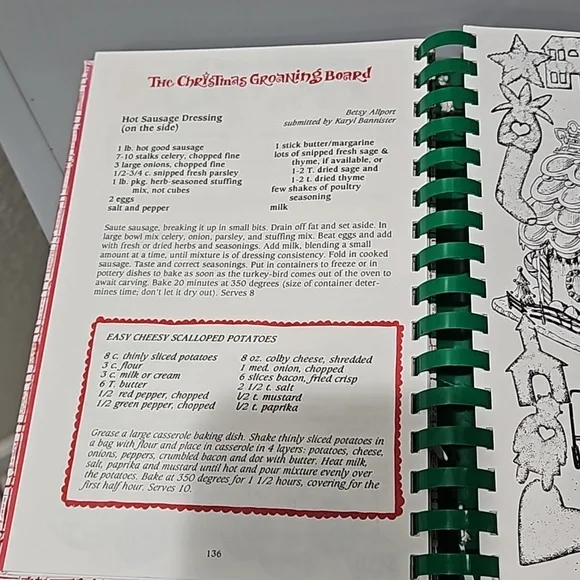 The Christmas Groaning Board
Hot Sausage Dressing
(on the side)
Betsy Allport
submitted by Karyl Bannister
1 lb. hot good sausage
7-10 stalks celery, chopped fine
3 large onions, chopped fine
1/2-3/4 c. snipped fresh parsley
1 lb. pkg. herb-seasoned stuffing
mix, not cubes
2 eggs
salt and pepper
1 stick butter/margarine
lots of snipped fresh sage &
thyme, if available, or
1-2 T. dried sage and
1-2 t. dried thyme
few shakes of poultry
seasoning
milk
Saute sausage, breaking it up in small bits. Drain off fat and set aside. In
large bowl mix celery, onion, parsley, and stuffing mix. Beat eggs and add
with fresh or dried herbs and seasonings. Add milk, blending a small
amount at a time, until mixture is of dressing consistency. Fold in cooked
sausage. Taste and correct seasonings. Put in containers to freeze or in
pottery dishes to bake as soon as the turkey-bird comes out of the oven to
await carving. Bake 20 minutes at 350 degrees (size of container deter-
mines time; don't let it dry out). Serves 8
EASY CHEESY SCALLOPED POTATOES
8 c. thinly sliced potatoes
3 c. flour
3 c. milk or cream
6 T. butter
1/2 red pepper, chopped
1/2 green pepper, chopped
8 oz. colby cheese, shredded
1 med. onion, chopped
6 slices bacon, fried crisp
2 1/2 t. salt
1/2 t. mustard
1/2 t. paprika
Grease a large casserole baking dish. Shake thinly sliced potatoes in
a bag with flour and place in casserole in 4 layers: potatoes, cheese,
onions, peppers, crumbled bacon and dot with butter. Heat milk,
salt, paprika and mustard until hot and pour mixture evenly over
the potatoes. Bake at 350 degrees for 1 1/2 hours, covering for the
first half hour. Serves 10.
136